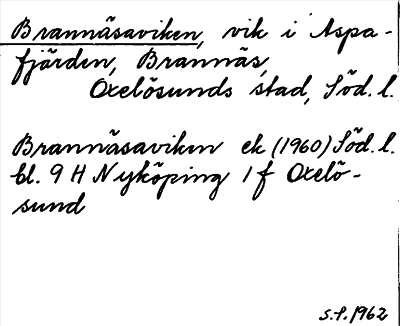 Brannäsaviken, vik i Aspa-
fjärden, Brannäs,
Oxelösunds stad, Söd. l.
Brannäsaviken ek (1960) Söd. l.
bl. 9 H Nyköping 1 f Oxelö-
sund
s.f. 1962